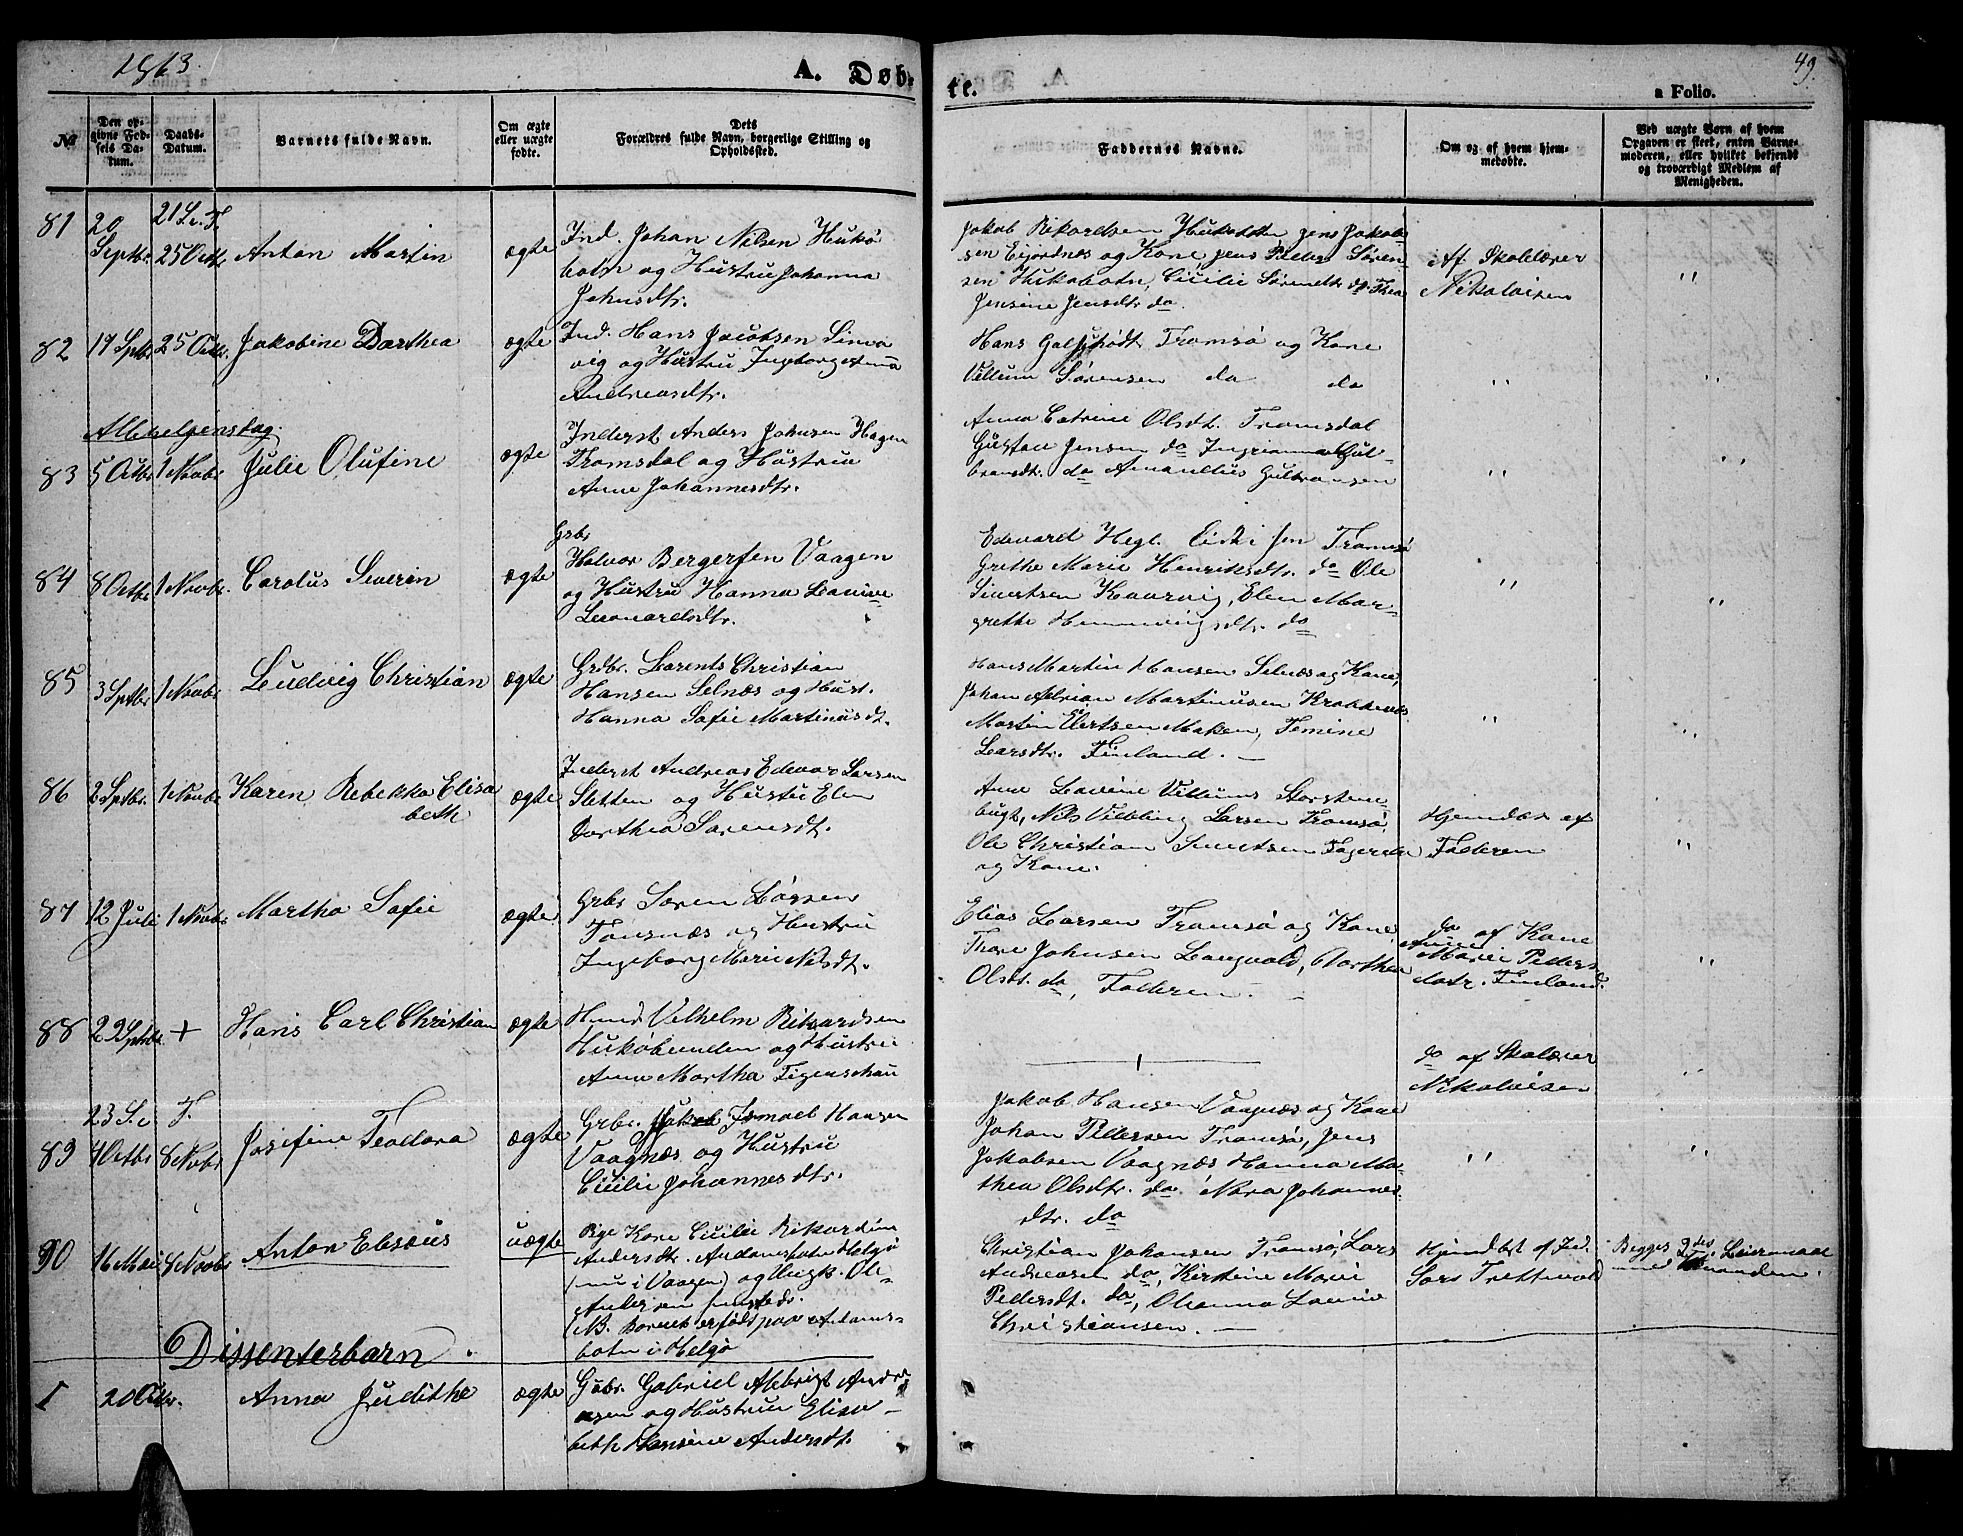 1863.
A. Døb-
te.
49.
a Folio.
№
Den op-
givne Fød-
sels Da-
tum.
Daabs-
Datum.
Barnets fulde Navn.
Om ægte
eller uægte
fødte.
Dets
Forældres fulde Navn, borgerlige Stilling og
Opholdssted.
Faddernes Navne.
Om og af hvem hjem-
medøbte.
Ved uægte Børn af hvem
Opgaven er skeet, enten Barne-
moderen, eller hvilket bekjendt
og troværdigt Medlem af
Menigheden.
81
20
Septbr.
21 S. e. T.
25 Octbr.
Anton Martin
ægte
Ind. Johan Nilsen Hukø
botn og Hustru Johanna
Johnsdtr.
Jakob Rikardsen Jens Jakob-
sen Eijordnes og Kone Jens Peder Søren-
sen Hukøbotn, Cicilie Sørensdtr. do. Thea
Jensine Jensdtr. do
Af Skolelærer
Nikolaisen
"
82
19 Sptbr.
25 Octbr.
Jakobine Dorthea
ægte
Ind. Hans Jacobsen Simva
vig og Hustru Ingeborg Anna
Andreasdtr.
Hans Tromsø og Kone
Villum Sørensen do do
"
"
Allehelgensdag.
83
5 Octbr.
1 Novbr.
Julie Olufine
ægte
Inderst Anders Johnsen Hagen
Tromsdal og Hustru
Anne Johannesdtr.
Anna Catrine Olsdt. Tromsdal
Gustav Jensen do Gul-
bransdtr. do Amandius Gulbransen
"
"
84
8 Octbr.
1 Novbr.
Carolus Severin
ægte
Grbr
Halvor Bergersen Vaagen
og Hustru Hanna Lovise
Leonardsdtr.
Edevard Hegl. Tromsø
Grethe Marie Henriksdtr. do Ole
Sivertsen Kaarvig, Elen Mar-
grethe Hemmingsdtr. do
"
"
85
3 Sptbr.
1 Novbr.
Ludvig Christian
ægte
Grdbr. Lorents Christian
Hansen Selnæs og Hust.
Hanna Sofie Martinusdt.
Hans Martin Hansen Selnæs og Kone,
Johan Adrian Martinusen Krokknes
Martin Elertsen Maken, Femine
Larsdtr. Finland. —
"
"
86
2 Sptbr.
1 Novbr.
Karen Rebekka Elisa
beth
ægte
Inderst Andreas Edvar Larsen
Sletten og Hustru Elen
Dorthea Sørensdt.
Ane Lovine Villums Storstens-
bugt, Nils Larsen Tromsø,
Ole Christian
og Kone.
Hjemdøb af
Faderen
"
87
12 Juli
1 Novbr.
Martha Sofie
ægte
Grbr Søren Larsen
Tønsnæs og Hustru
Ingeborg Marie Nilsdt.
Elias Larsen Tromsø og Kone
Thore Johnsen Langvold, Dorthea
Olsdt. do, Faderen. —
do af Kone
Anne
Marie Peders-
datr. Finland.
"
88
29 Sptbr.
+
Hans Carl Christian
ægte
Vilhelm Rikardsen
Hukøbunden og Hustru
Anne Martha Figenschau
do af Skolærer
Nikolaisen
"
23 S. e. T.
89
4 Octbr
8 Novbr.
Josefine Teodora
ægte
Grbr. Ismael Hansen
Vaagnæs og Hustru
Cicilie Johannesdtr.
Jakob Hansen Vaagnæs og Kone
Johan Pedersen Tromsø, Jens
Jakobsen Vaagnæs Hanna Ma-
thea Olsdtr. do Nora Johannes-
dtr. do
"
"
90
16 Mai
8 Novbr
Anton Ebsæus
uægte
Pige Kone Cicilie Rikardine
Andersdt. Andamsbotn Helgø
(nu i Vaagen) og Ungk. Ole
Andersen
(NB. Barnet er født paa Adams-
botn i Helgø
Christian Johansen Tromsø, Lars
Andreasen do, Kirstine Marie
Pedersdt. do, Oleanna Lovise
Christiansen. —
Hjemdbt af Ind.
Lars Trettevold
Begges 2det Leiermaal
med
Dissenterbarn.
1
20 Octbr.
Anna Judithe
ægte
Gabr. Gabriel Albrigt Andre
asen og Hustru Elisa-
beth Hansine Andersdt.